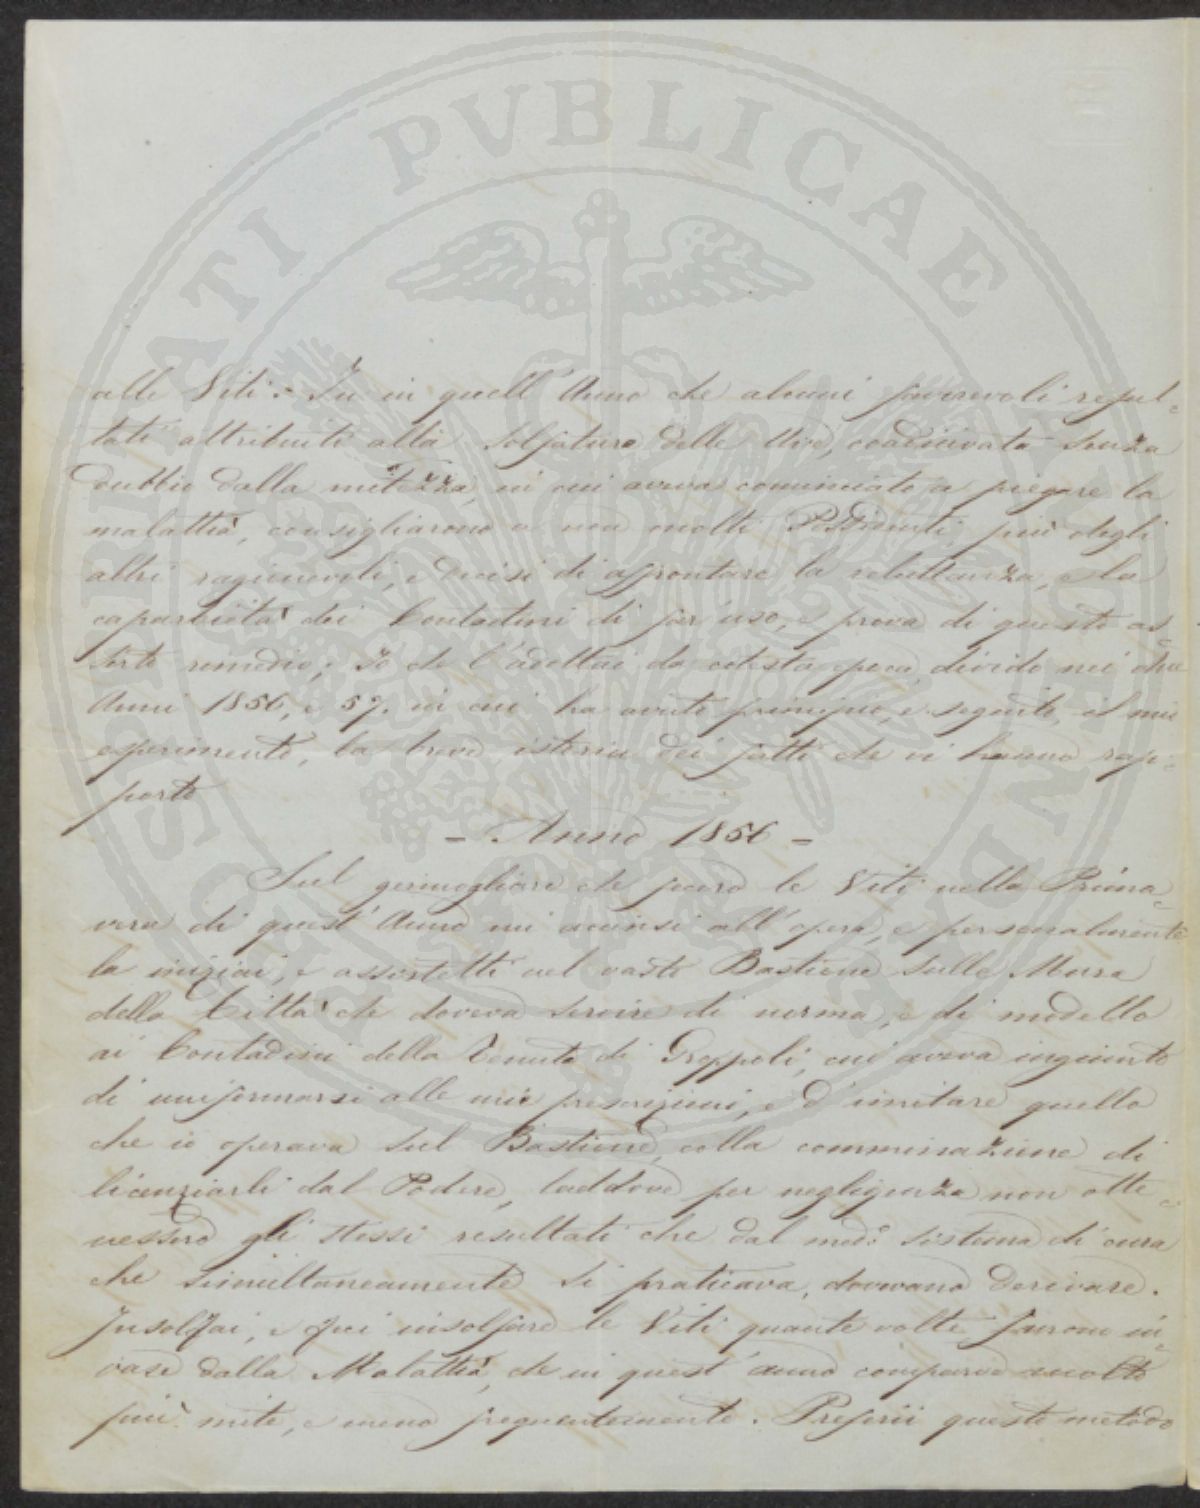 PROSPERITATI PVBLICAE AVGENDAE
alle Viti: Fu in quell'Anno che alcuni favorevoli resul=
tati attribuiti alla Solfatura delle Uve, coadiuvata senza
dubbio dalla mitezza, in cui aveva cominciato a piegare la
malattia, consigliarono a non molti Possidenti, più degli
altri ragionevoli, e decisi di affrontare la reluttanza, e la
caparbietà dei Contadini di far uso, e prova di questo as=
serto rimedio; Io che l'adottai da cotesta epoca, divido nei due
Anni 1856, e 57. in cui ha avuto principio, e seguito, il mio
esperimento, la breve istoria dei fatti che vi hanno rap=
porto
- Anno 1856 -
Sul germogliare che fecero le Viti nella Prima=
vera di quest'Anno mi accinsi all'opera, e personalmente
la iniziai, e assistetti nel vasto Bastione sulle Mura
della Città che doveva servire di norma, e di modello
ai Contadini della Tenuta di Groppoli, cui aveva ingiunto
di uniformarsi alle mie prescrizioni, e d'imitare quello
che io operava sul Bastione, colla comminazione di
licenziarli dal Podere, laddove per negligenza non otte=
nessero gli stessi resultati che dal med.° sistema di cura
che simultaneamente si praticava, dovevano derivare.
Insolfai, e feci insolfare le Viti quante volte furono in=
vase dalla Malattia, che in quest'anno comparve molto
più mite, e meno frequentemente. Preferii questo metodo